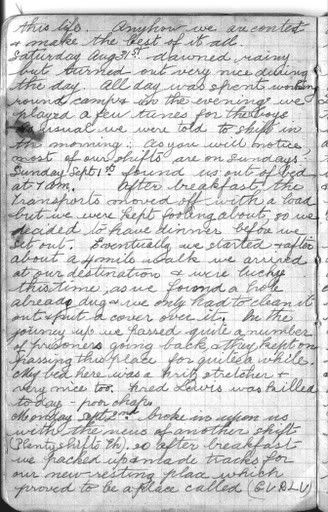 this life. Anyhow we are content
& make the best of it all.
Saturday Aug 31st dawned rainy
but turned out very nice during
the day. All day was spent working
round camp & in the evening we
played a few tunes for the boys
As usual we were told to shift in
the morning: as you will notice
most of our shifts are on Sundays.
Sunday Sept 1st found us out of bed
at 7 am. After breakfast the
transports moved off with a load
but we were kept fooling about, so we
decided to have dinner before we
set out. Eventually we started & after
about a 4 mile walk we arrived
at our destination & were lucky
this time, as we found a hole
already dug & we only had to clean it
out & put a cover over it. On the
journey up we passed quite a number
of prisoners going back & they kept on
passing this place for quite a while.
My bed here was a fritz stretcher &
very nice too. Fred Lewis was killed
to day - poor chap.
Monday Sept 2nd. broke in upon us
with the news of another shift
(Plenty shifts eh), so after breakfast
we packed up & made tracks for
our new resting place which
proved to be a place called